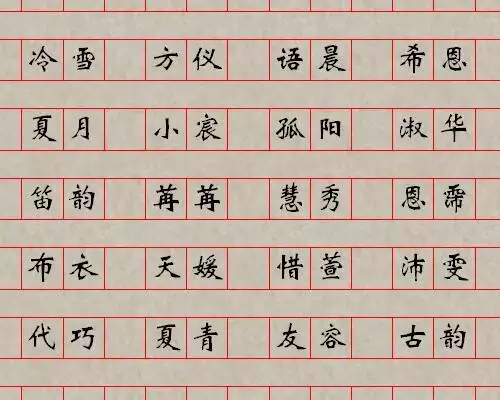 冷雪 方仪 语晨 希恩
夏月 小宸 孤阳 淑华
笛韵 苒苒 慧秀 恩霈
布衣 天媛 惜萱 沛雯
代巧 夏青 友容 古韵